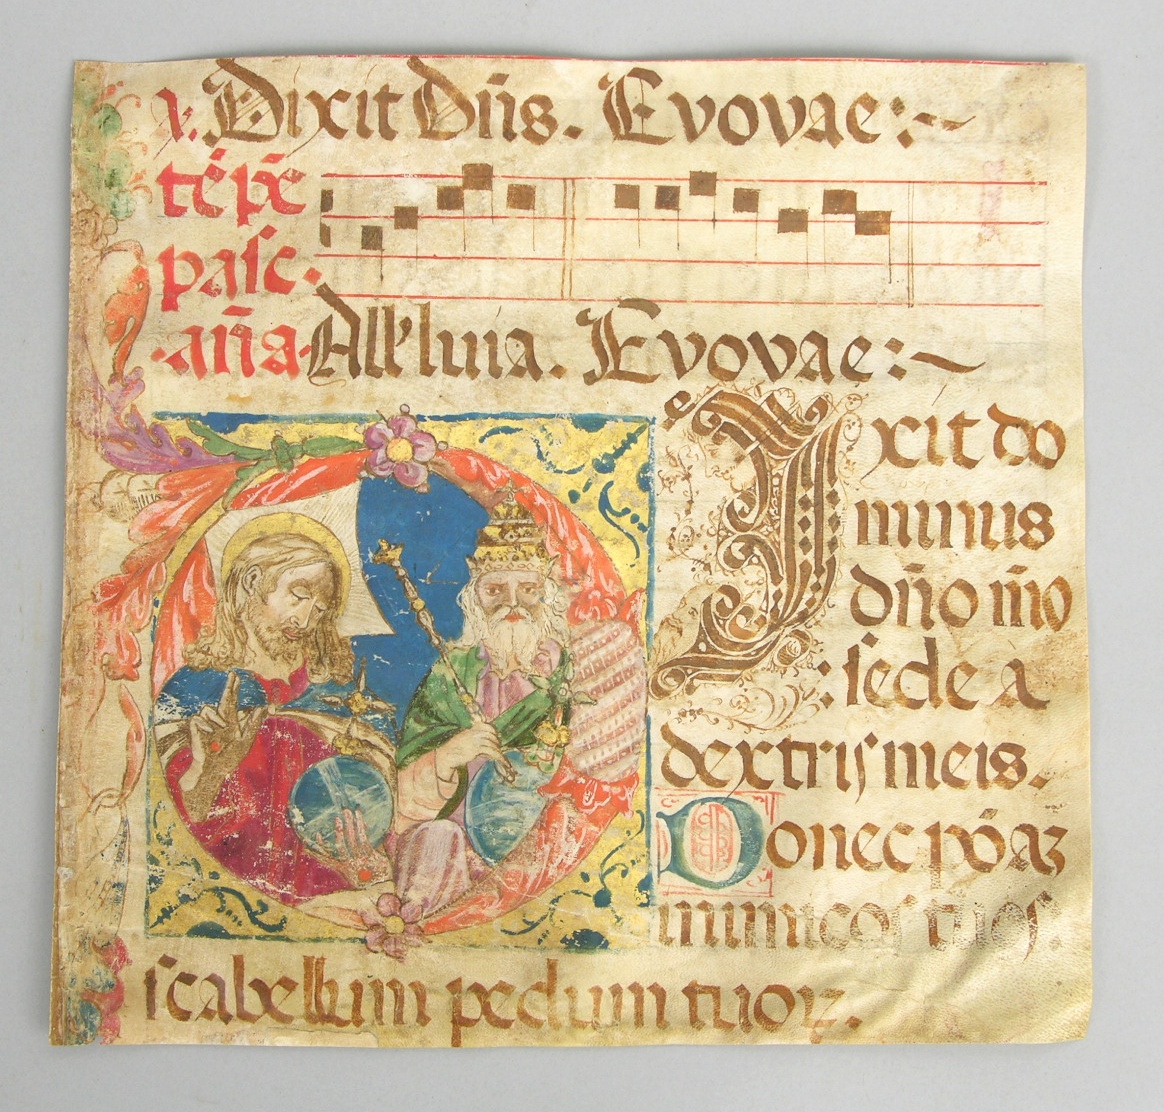 v. Dixit Dn̄s. Evovae:~
tēp̄e
pasc.
añã Alĺeluia. Evovae:~
Ixit do
minus
dn̄o m̄o
sede a
dextris meis.
Donec pōaʒ
inimicos tuos.
scabellum pedum tuoꝝ.